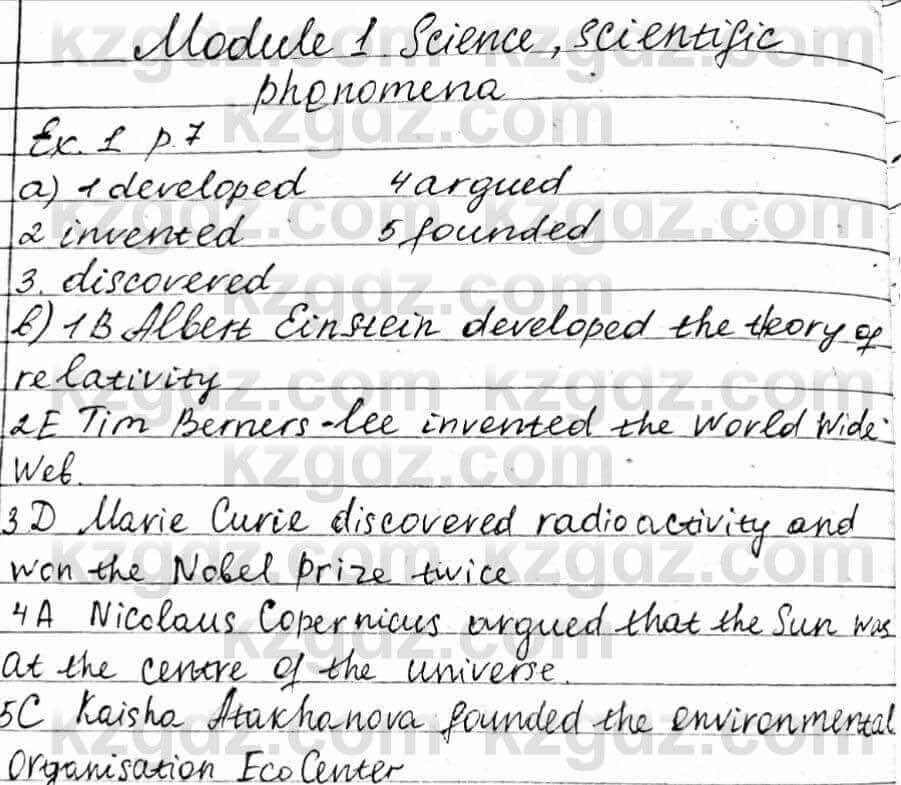 Module 1 Science, scientific
phenomena
Ex. 1 p. 7
a) 1 developed 4 argued
2 invented 5 founded
3. discovered
b) 1B Albert Einstein developed the theory of
relativity
2E Tim Berners-Lee invented the World Wide
Web.
3D Marie Curie discovered radioactivity and
won the Nobel prize twice
4A Nicolaus Copernicus argued that the Sun was
at the centre of the universe.
5C Kaisha Atakhanova founded the environmental
Organisation EcoCenter
kzgdz.com